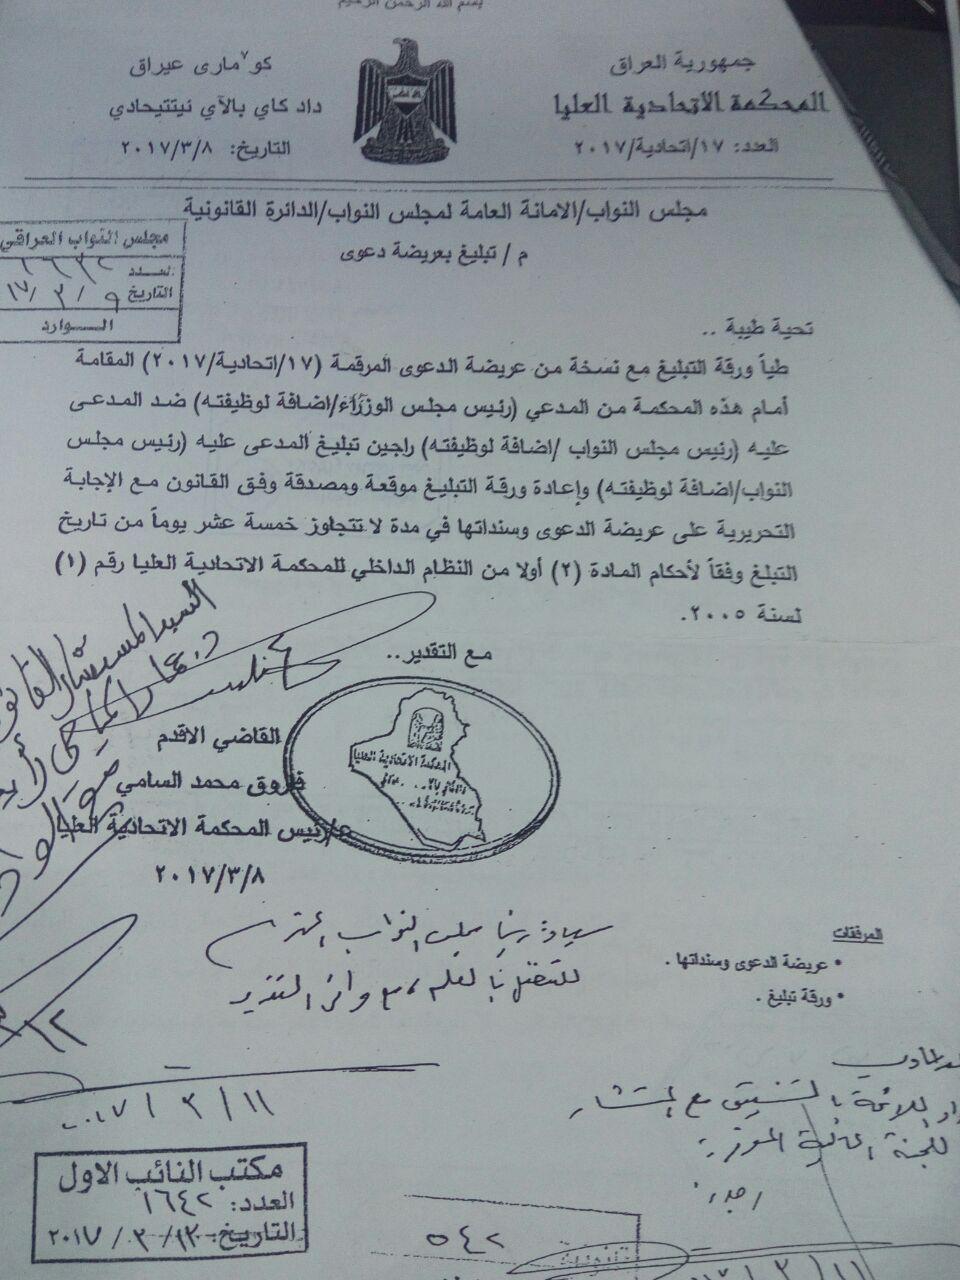 بسم الله الرحمن الرحيم
جمهورية العراق
المحكمة الاتحادية العليا
العدد: ١٧/اتحادية/٢٠١٧
كو٧مارى عيراق
داد كاي بالآي ئيتتيحادي
التاريخ: ٢٠١٧/٣/٨
مجلس النواب/الامانة العامة لمجلس النواب/الدائرة القانونية
م / تبليغ بعريضة دعوى
مجلس النواب العراقي
العدد
التاريخ ٩ / ٣ / ١٧
الـــوارد
تحية طيبة ..
طياً ورقة التبليغ مع نسخة من عريضة الدعوى المرقمة (١٧/اتحادية/٢٠١٧) المقامة
أمام هذه المحكمة من المدعي (رئيس مجلس الوزراء/اضافة لوظيفته) ضد المدعى
عليه (رئيس مجلس النواب /اضافة لوظيفته) راجين تبليغ المدعى عليه (رئيس مجلس
النواب/اضافة لوظيفته) وإعادة ورقة التبليغ موقعة ومصدقة وفق القانون مع الإجابة
التحريرية على عريضة الدعوى وسنداتها في مدة لا تتجاوز خمسة عشر يوماً من تاريخ
التبلغ وفقاً لأحكام المادة (٢) أولا من النظام الداخلي للمحكمة الاتحادية العليا رقم (١)
لسنة ٢٠٠٥.
مع التقدير..
السيد المستشار
القاضي الاقدم
فاروق محمد السامي
ع/رئيس المحكمة الاتحادية العليا
٢٠١٧/٣/٨
المحكمة الاتحادية العليا
المرفقات
• عريضة الدعوى وسنداتها .
• ورقة تبليغ .
مجلس النواب
للتفضل بالعلم مع وافر التقدير
٢٠١٧ / ٣ / ١١
بالتنسيق مع المستشار
مكتب النائب الاول
العدد: ١٦٤٢
التاريخ: ١٢ / ٣ / ٢٠١٧
٥٤٢